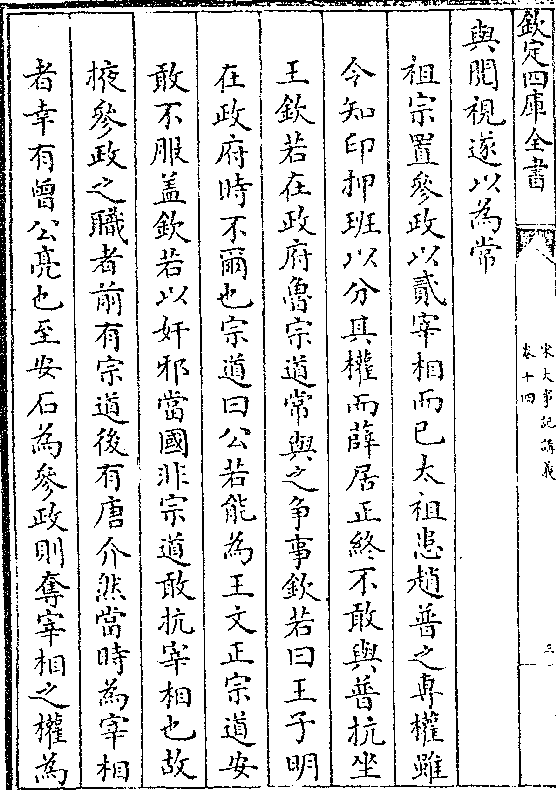 欽定四庫全書
宋大事記講義
卷十四
三
與閱視遂以為常
祖宗置參政以貳宰相而已太祖患趙普之専權雖
令知印押班以分其權而薛居正終不敢與普抗坐
王欽若在政府魯宗道常與之争事欽若曰王子明
在政府時不爾也宗道曰公若能為王文正宗道安
敢不服盖欽若以奸邪當國非宗道敢抗宰相也故
掖參政之職者前有宗道後有唐介然當時為宰相
者幸有曾公亮也至安石為參政則奪宰相之權為